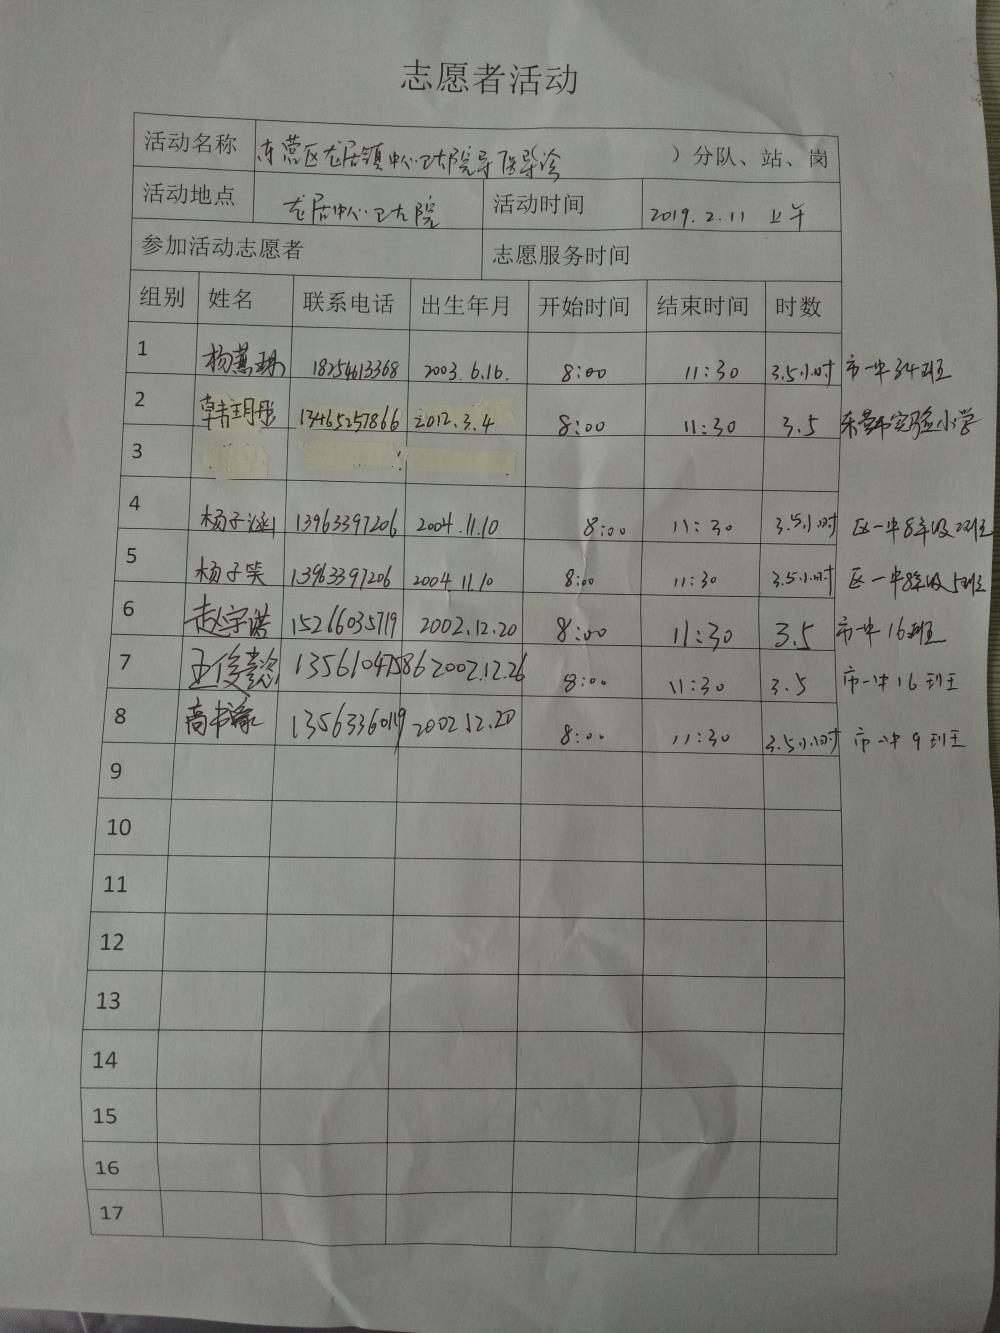 志愿者活动
活动名称 东营区龙居镇中心卫生院导医导诊 ）分队、站、岗
活动地点 龙居中心卫生院 活动时间 2019.2.11 上午
参加活动志愿者 志愿服务时间
组别 姓名 联系电话 出生年月 开始时间 结束时间 时数
1 杨蕙 18254613368 2003.6.16. 8:00 11:30 3.5小时 市一中34班
2 韩玥彤 13465257866 2012.3.4 8:00 11:30 3.5 东营市实验小学
3
4 杨子涵 13963397206 2004.11.10 8:00 11:30 3.5小时 区一中8年级2班
5 杨子笑 13963397206 2004.11.10 8:00 11:30 3.5小时 区一中8年级5班
6 赵宇诺 15266035719 2002.12.20 8:00 11:30 3.5 市一中16班
7 王俊懿 13561047586 2002.12.26 8:00 11:30 3.5 市一中16班
8 高书豪 13563360119 2002.12.20 8:00 11:30 3.5小时 市一中9班
9
10
11
12
13
14
15
16
17